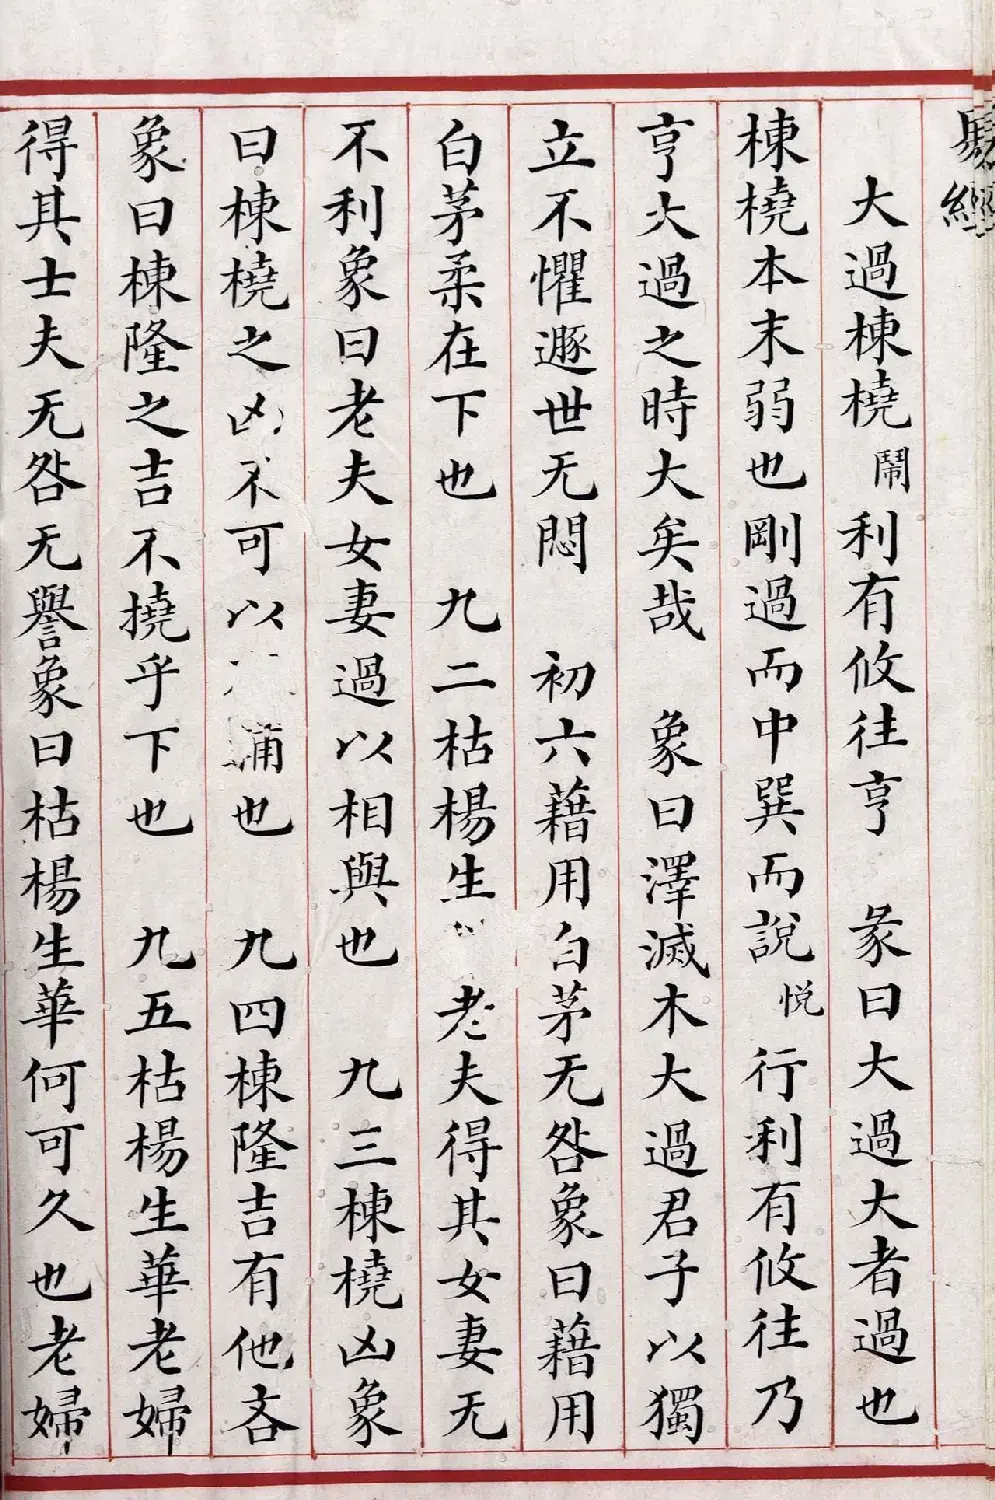 易經
大過棟橈鬧利有攸往亨　彖曰大過大者過也
棟橈本末弱也剛過而中巽而說悅行利有攸往乃
亨大過之時大矣哉　象曰澤滅木大過君子以獨
立不懼遯世无悶　初六藉用白茅无咎象曰藉用
白茅柔在下也　九二枯楊生　老夫得其女妻无
不利象曰老夫女妻過以相與也　九三棟橈凶象
曰棟橈之凶不可以　輔也　九四棟隆吉有他吝
象曰棟隆之吉不撓乎下也　九五枯楊生華老婦
得其士夫无咎无譽象曰枯楊生華何可久也老婦